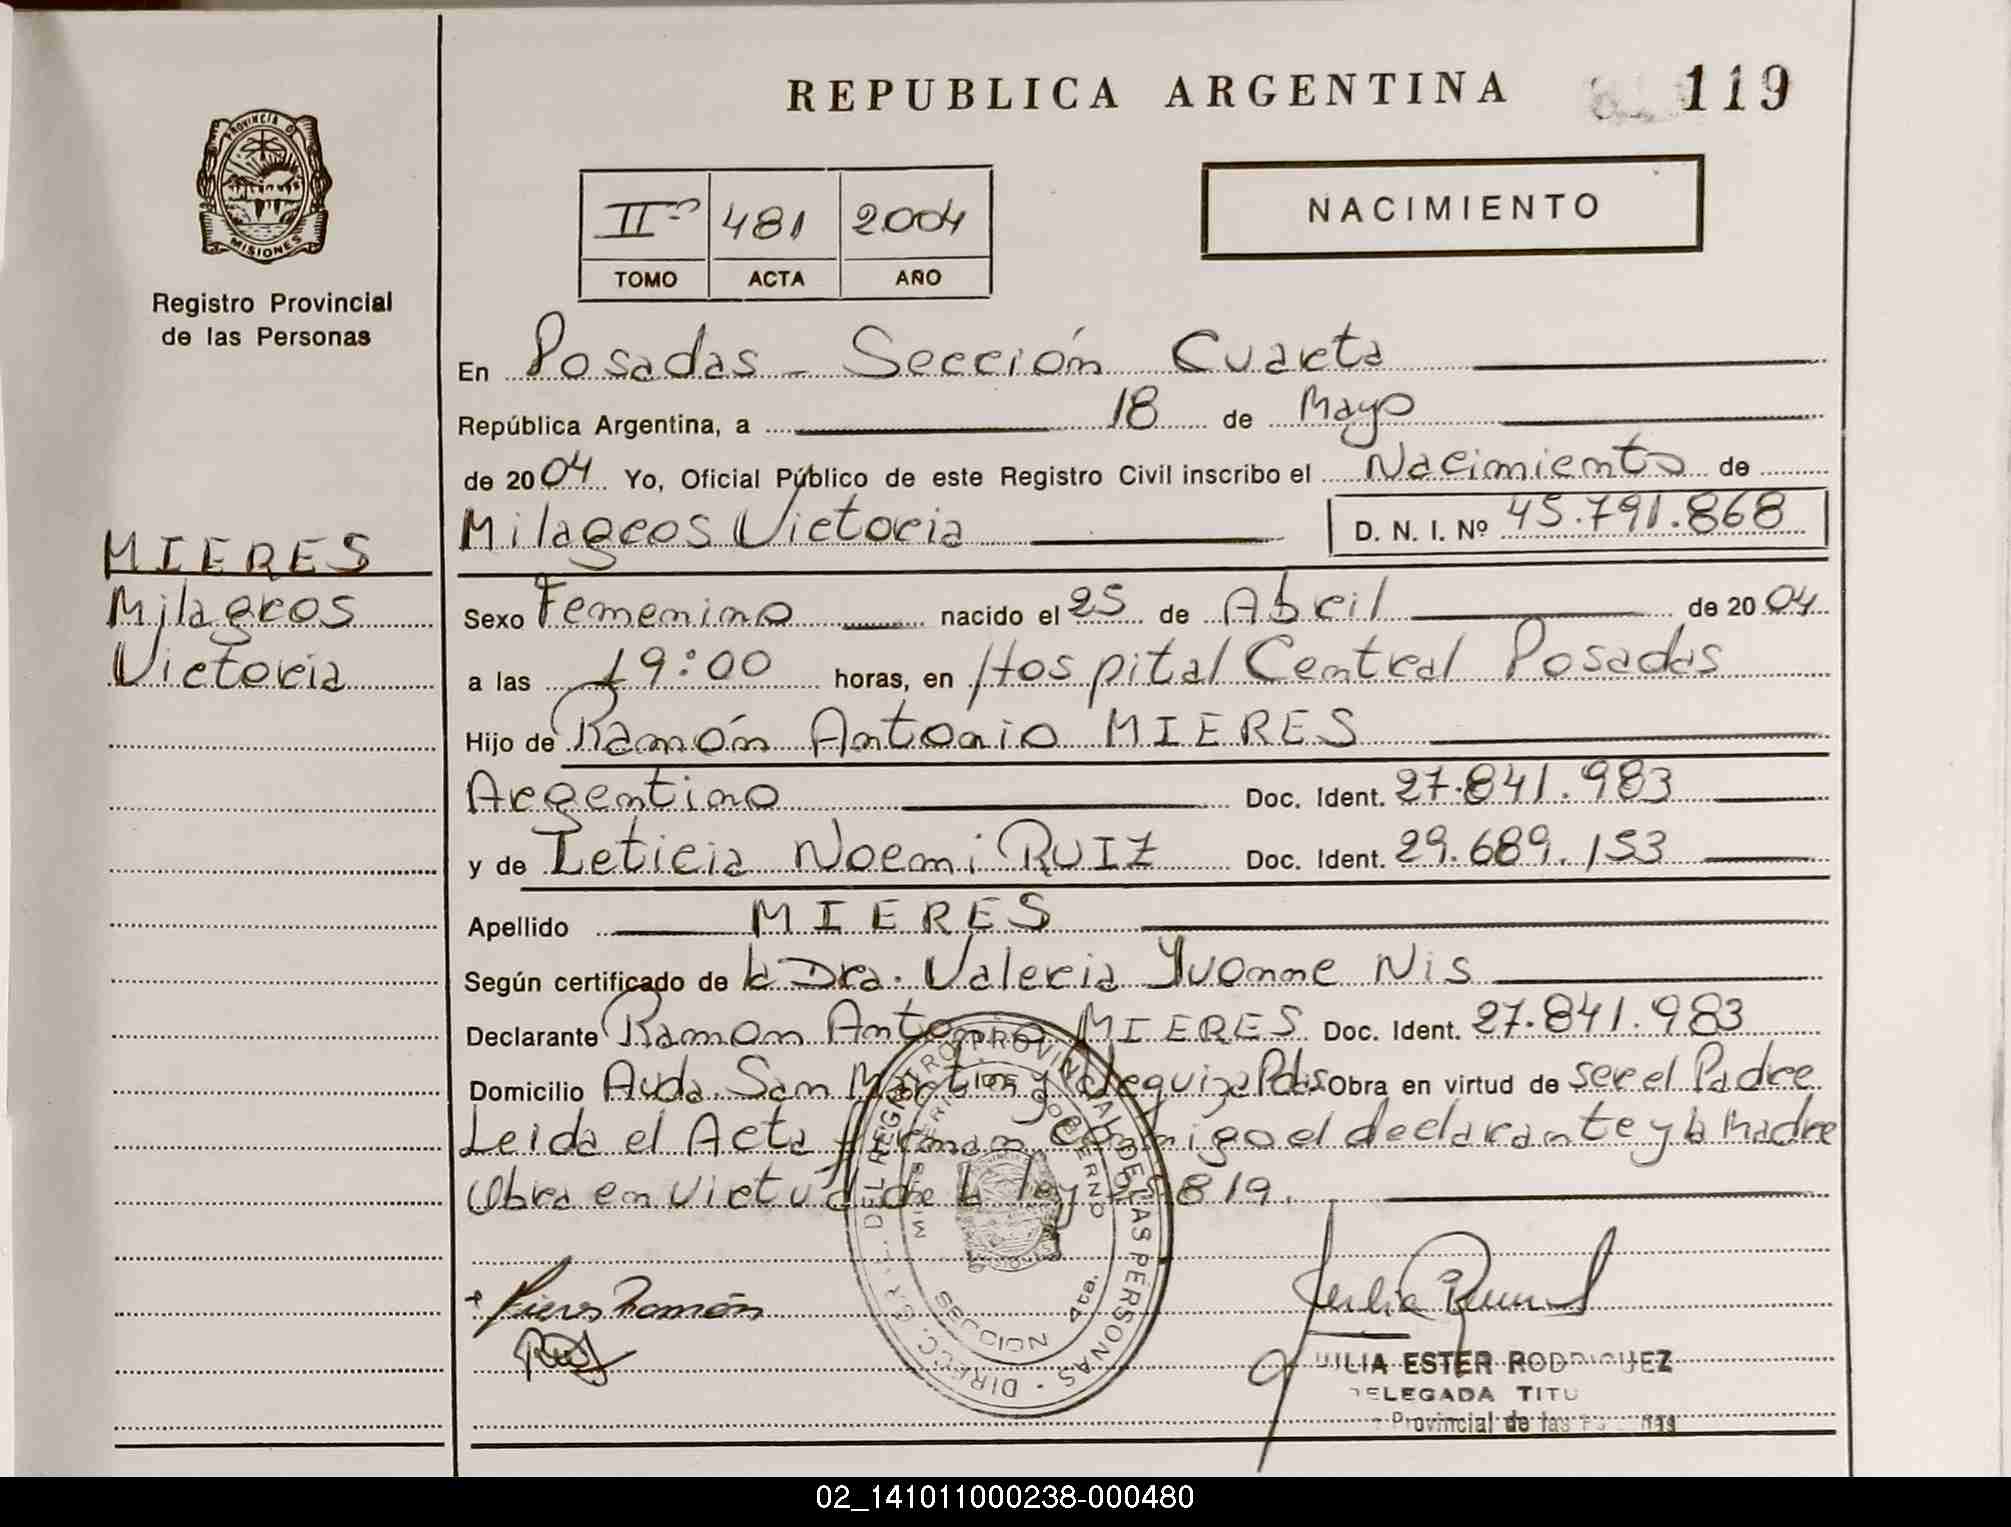 REPUBLICA ARGENTINA
119
PROVINCIA D
MISIONES
Registro Provincial
de las Personas
IIº 481 2004
TOMO ACTA AÑO
NACIMIENTO
En Posadas - Sección Cuarta
República Argentina, a 18 de Mayo
de 2004 Yo, Oficial Público de este Registro Civil inscribo el Nacimiento de
Milagros Victoria D. N. I. Nº 45.791.868
MIERES
Milagros
Victoria
Sexo Femenino nacido el 25 de Abril de 2004
a las 19:00 horas, en Hospital Central Posadas
Hijo de Ramón Antonio MIERES
Argentino Doc. Ident. 27.841.983
y de Leticia Noemi RUIZ Doc. Ident. 29.689.153
Apellido MIERES
Según certificado de la Dra. Valeria Yvonne Nis
Declarante Ramon Antonio MIERES Doc. Ident. 27.841.983
Domicilio Avda. San Martin y Pdas Obra en virtud de ser el Padre
Leida el Acta firman conmigo el declarante y la Madre
Obra en virtud de la ley 819.
DIRECC. GRAL. DEL REGISTRO PROVINCIAL DE LAS PERSONAS
GOBIERNO
SECCION 4ta.
Mieres Ramón
JULIA ESTER RODRIGUEZ
DELEGADA TITU
Provincial de las
02_141011000238-000480